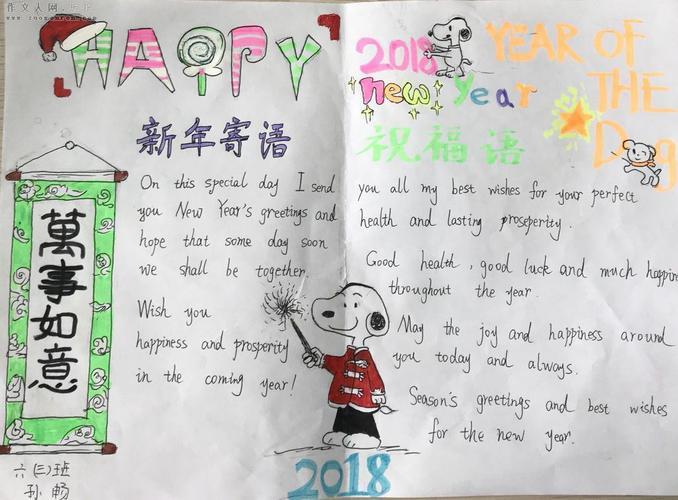 作文人网
HAPPY
2018
New Year
YEAR OF
THE
Dog
新年寄语
祝福语
萬事如意
On this special day I send
you New Year's greetings and
hope that some day soon
we shall be together.
Wish you
happiness and prosperity
in the coming year!
you all my best wishes for your perfect
health and lasting prosperity.
Good health, good luck and much happin
throughout the year.
May the joy and happiness around
you today and always.
Season's greetings and best wishes
for the new year.
2018
六(三)班
孙畅